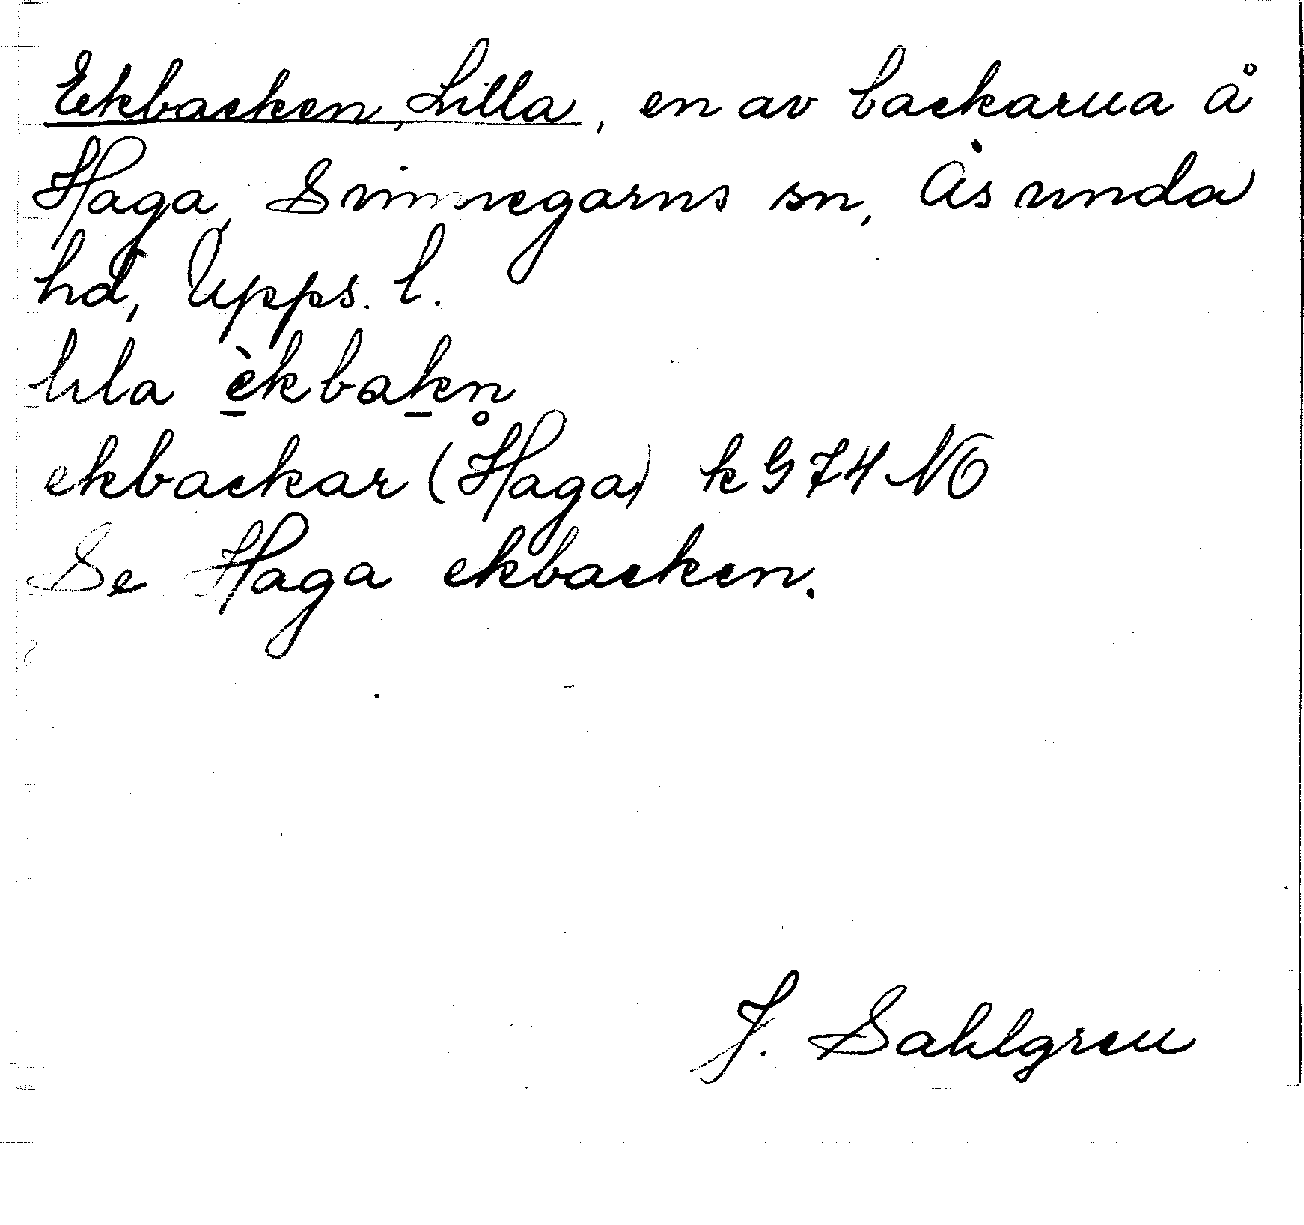 Ekbacken, Lilla, en av backarna å
Haga, Svinnegarns sn, Åsunda
hd, Upps. l.
lıla èkbakn̥
ekbackar (Haga) k G 74 NO
Se Haga ekbacken.
J. Sahlgren